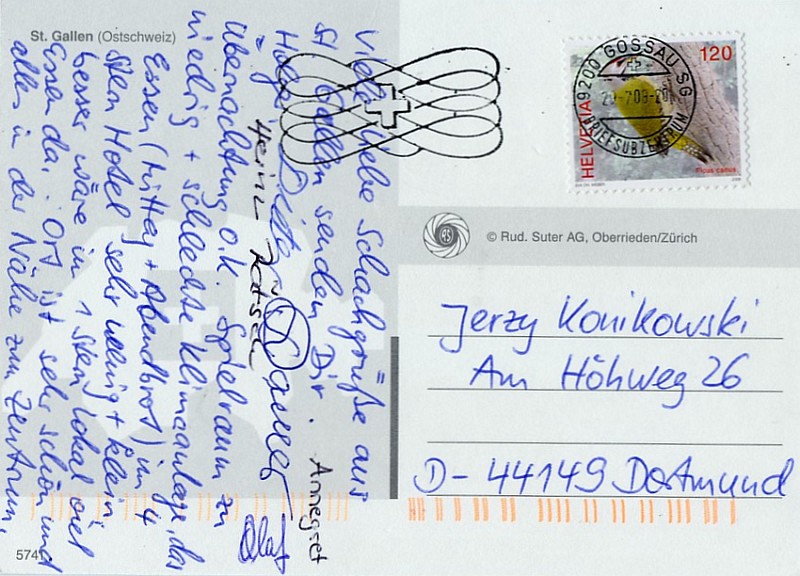 St. Gallen (Ostschweiz)
Viele liebe Schachgrüße aus
St. Gallen senden Dir.
Annegret
Olaf
Heinz
Übernachtung o.k. Spielraum zu
niedrig + schlechte Klimaanlage, das
Essen (Mittag + Abendbrot) im 4
Stern Hotel sehr wenig + klein,
besser wäre im 1 Stern Lokal viel
Essen da. Ort ist sehr schön und
alles in der Nähe zum Zentrum.
5741
HELVETIA
120
Picus canus
9200 GOSSAU SG
BRIEFSUBZENTRUM
© Rud. Suter AG, Oberrieden/Zürich
Jerzy Konikowski
Am Höhweg 26
D-44149 Dortmund